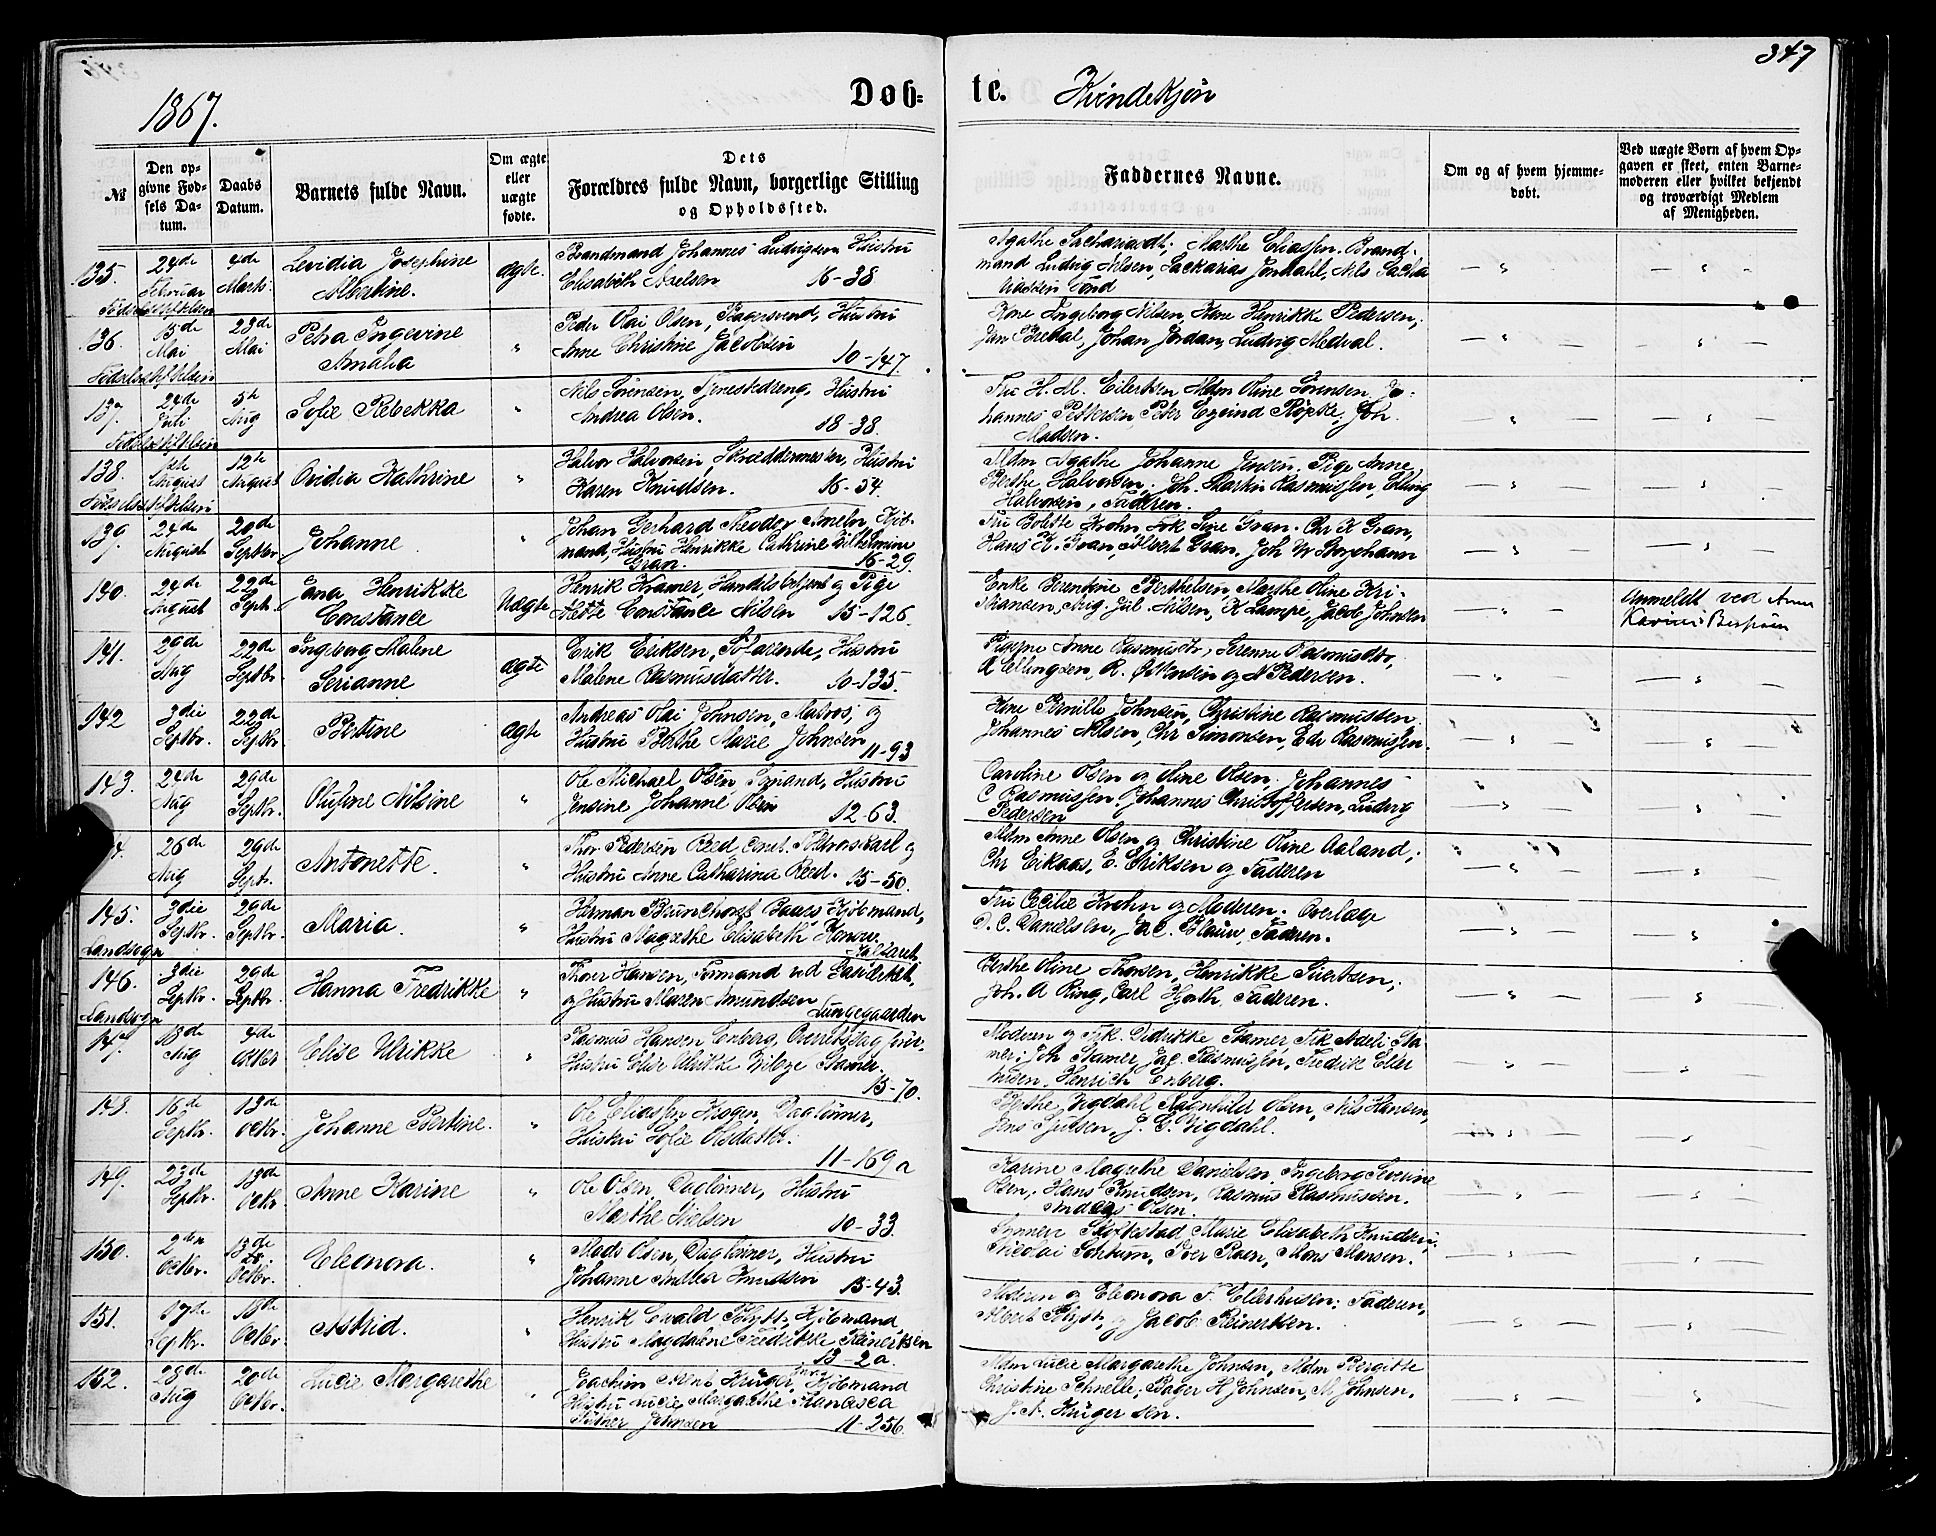 347
1867.
Døb-
te.
Kvindekjøn
№
Den op-
givne Fød-
sels Da-
tum.
Daabs
Datum.
Barnets fulde Navn.
Om ægte
eller
uægte
fødte.
Dets
Forældres fulde Navn, borgerlige Stilling
og Opholdssted.
Faddernes Navne.
Om og af hvem hjemme-
døbt.
Ved uægte Børn af hvem Op-
gaven er skeet, enten Barne-
moderen eller hvilket bekjendt
og troværdigt Medlem
af Menigheden.
135. 24de Februar 4de Marts Levidia Josephine Albertine. ægte. Brandmand Johannes Ludvigsen Hustru
Elisabeth Axelsen 16-38
Agathe Marthe Eliassen. Brand-
mand Ludvig Nilsen, Nils
Fødselsstiftelsen
136. 15de Mai 23de Mai Petra Ingevine Amalia " Peder Olai Olsen, Bagersvend, Hustru
Anne Christine Jacobsen 10-147.
Kone Ingeborg Nilsen, Kone Henrikke Pedersen,
Johan Jordan, Ludvig
Fødselsstiftelsen
137. 24de Juli 5te Aug Sofie Rebekka " Nils Sørensen, Tjenestedreng, Hustru
Andrea Olsen. 18-38.
Fru H. M. Eilertsen Mdm Oline Sørensen, Jo-
hannes Pettersen, Peter Eyvind Røpke, Joh.
Madsen.
Fødselsstiftelsen
138. August 12te August Ovidia Kathrine " Halvor Halvorsen, Skræddermester, Hustru
Karen Knudsen. 16-34.
Mdm Agathe Johanne Jensen. Pige Anne
Berthe Halvorsen, Joh. Martin Rasmussen, Elling
Halvorsen, Faderen.
Fødselsstiftelsen
139. 24de August 20de Septbr Johanne " Johan Gerhard Theodor Ameln, Kjøb-
mand, Hustru Henrikke Cathrine Wilhelmine
Gran. 16-29.
Fru Bolette Krohn Frk Sine Gran. Chr K Gran,
Hans K. Gran, Albert Gran, Joh W
140. 24de August 22de Sept. Jana Henrikke Constance Uægte Henrik Kramer, Handelsbetjent og Pige
Mette Constance Nilsen 15-126.
Enke Berentine Berthelsen, Marthe Oline Kri-
stiansen, Aug. Jul. Nilsen, K Lampe, Jacob Johnsen
Anmeldt ved Anne
141. 29de Aug 22de Septbr Ingeborg Malene Serianne ægte Erik Eriksen, Hustru
Malene Rasmusdatter. 10-135.
Pigerne Anne Rasmusdtr, Serenne Rasmusdtr,
A Ellingsen, R. og N Pedersen.
142 3die Septbr. 22de Septbr. Bertine ægte Andreas Olai Johnsen, Matros, og
Hustru Berthe Marie Johnsen 11-93
Kone Pernille Johnsen, Christine Rasmussen.
Johannes Nilsen, Chr Simonsen, Edv Rasmussen.
143. 24de Aug 29de Septbr. Olufine Nilsine " Ole Michael Olsen, Sømand, Hustru
Jensine Johanne Olsen 12-63.
Caroline Olsen og Oline Olsen, Johannes
C Rasmussen, Johannes Christoffersen, Ludvig
Pedersen
26de Aug 29de Septr. Antonette. " Thor Pedersen Reed, og
Hustru Anne Catharina Reed. 15-50.
Mdm Anne Olsen og Christine Oline Aaland,
Chr Eikaas, E. Eriksen og Faderen
145. 3die Septbr. 29de Septbr. Maria. " Herman Brunchorst Baars, Kjøbmand,
Hustru Magrethe Elisabeth Konow.
Kalfaret
Fru Cecilie Krohn og Moderen. Overlæge
D. C. Danielsen, Jac. Blauw, Faderen.
Landsogn
146. 3die Septbr. 29de Septbr. Hanna Fredrikke " Thoer Hansen, Formand ved Gasværket,
og Hustru Maren Amundsen Lungegaarden
Berthe Oline Thorsen, Henrikke Sivertsen,
Joh. A Ring, Carl Hjorth, Faderen.
Landsogn
147. 18de Aug 4de Oktbr Elise Ulrikke " Rasmus Hansen Enberg, Overretssagfører,
Hustru Elise Ulrikke Stamer. 15-70.
Moderen og Frk. Didrikke Stamer Frk Adele Sta-
mer, Joh Stamer, Jac. Rasmussen, Fredrik Eller
husen, Henrich Enberg.
148. 16de Septbr. 13de Octbr. Johanne Bertine. " Ole Eliassen Krogen, Dagløner,
Hustru Sofie Olsdatter. 11-169 a
Berthe Vigdahl Ragnhild Olsen, Nils Hansen,
Jens J. G. Vigdahl.
149. 23de Septbr. 13de Octbr. Anne Karine " Ole Olsen, Dagløner, Hustru
Marthe Nielsen 10-33.
Karine Magrethe Danielsen, Ingeborg Severine
Olsen, Hans Knudsen, Rasmus Rasmussen.
Andreas Olsen.
150. 2den Octbr. 13de Octbr. Eleonora. " Mads Olsen, Dagløner, Hustru
Johanne Andrea Knudsen 15-43.
Marie Elisabeth Knudsen,
Nicolai Mons Monsen.
151. 17de Septbr. 18de Octbr. Astrid. " Henrik Ewald Blytt, Kjøbmand
Hustru Magdalene Fredrikke Reinertsen
13-2a.
Moderen og Eleonora F. Ellerhusen; Faderen,
Albert Blytt, og Jacob Reinertsen.
152. 28de Aug 20de Octbr. Lucie Margarethe " Joachim Krüger, Kjøbmand
Hustru Lucie Margarethe Francisca
Johnsen 11-256.
Mdm Lucie Margarethe Johnsen, Mdm Bergitte
Christine Schnelle, Bager H Johnsen, M Johnsen,
J. A. Krüger sen.